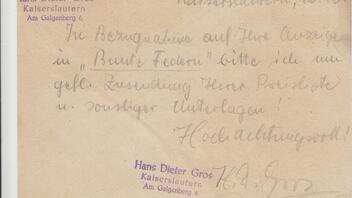 Hans Dieter Gros
Kaiserslautern
Am Galgenberg 6
Kaiserslautern,
In Bezugnahme auf Ihre Anzeige
in "Bunte Federn" bitte ich um
gefl. Zusendung Ihrer Preisliste
u. sonstiger Unterlagen!
Hochachtungsvoll!
Hans Dieter Gros
Kaiserslautern
Am Galgenberg 6
H. D. Gros